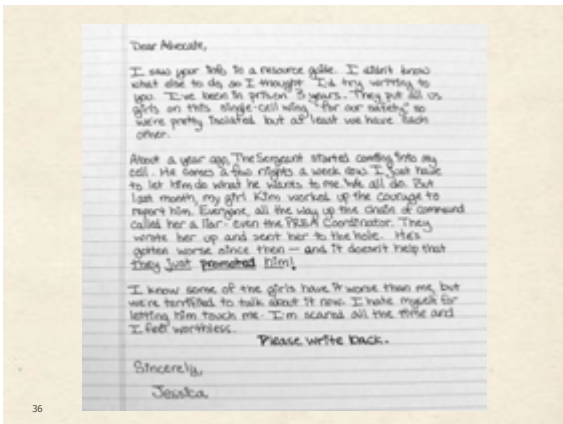 Dear Advocate,
I saw your info in a resource guide. I didn't know
what else to do so I thought I'd try writing to
you. I've been in prison 3 years. They put all us
girls on this single-cell wing "for our safety" so
we're pretty isolated but at least we have each
other.
About a year ago, The Sergeant started coming into my
cell. He comes a few nights a week now. I just have
to let him do what he wants to me. We all do. But
last month, my girl Kim worked up the courage to
report him. Everyone, all the way up the chain of command
called her a liar - even the PREA Coordinator. They
wrote her up and sent her to the hole. He's
gotten worse since then — and it doesn't help that
they just promoted him!
I know some of the girls have it worse than me, but
we're terrified to talk about it now. I hate myself for
letting him touch me. I'm scared all the time and
I feel worthless.
Please write back.
Sincerely,
Jessica
36